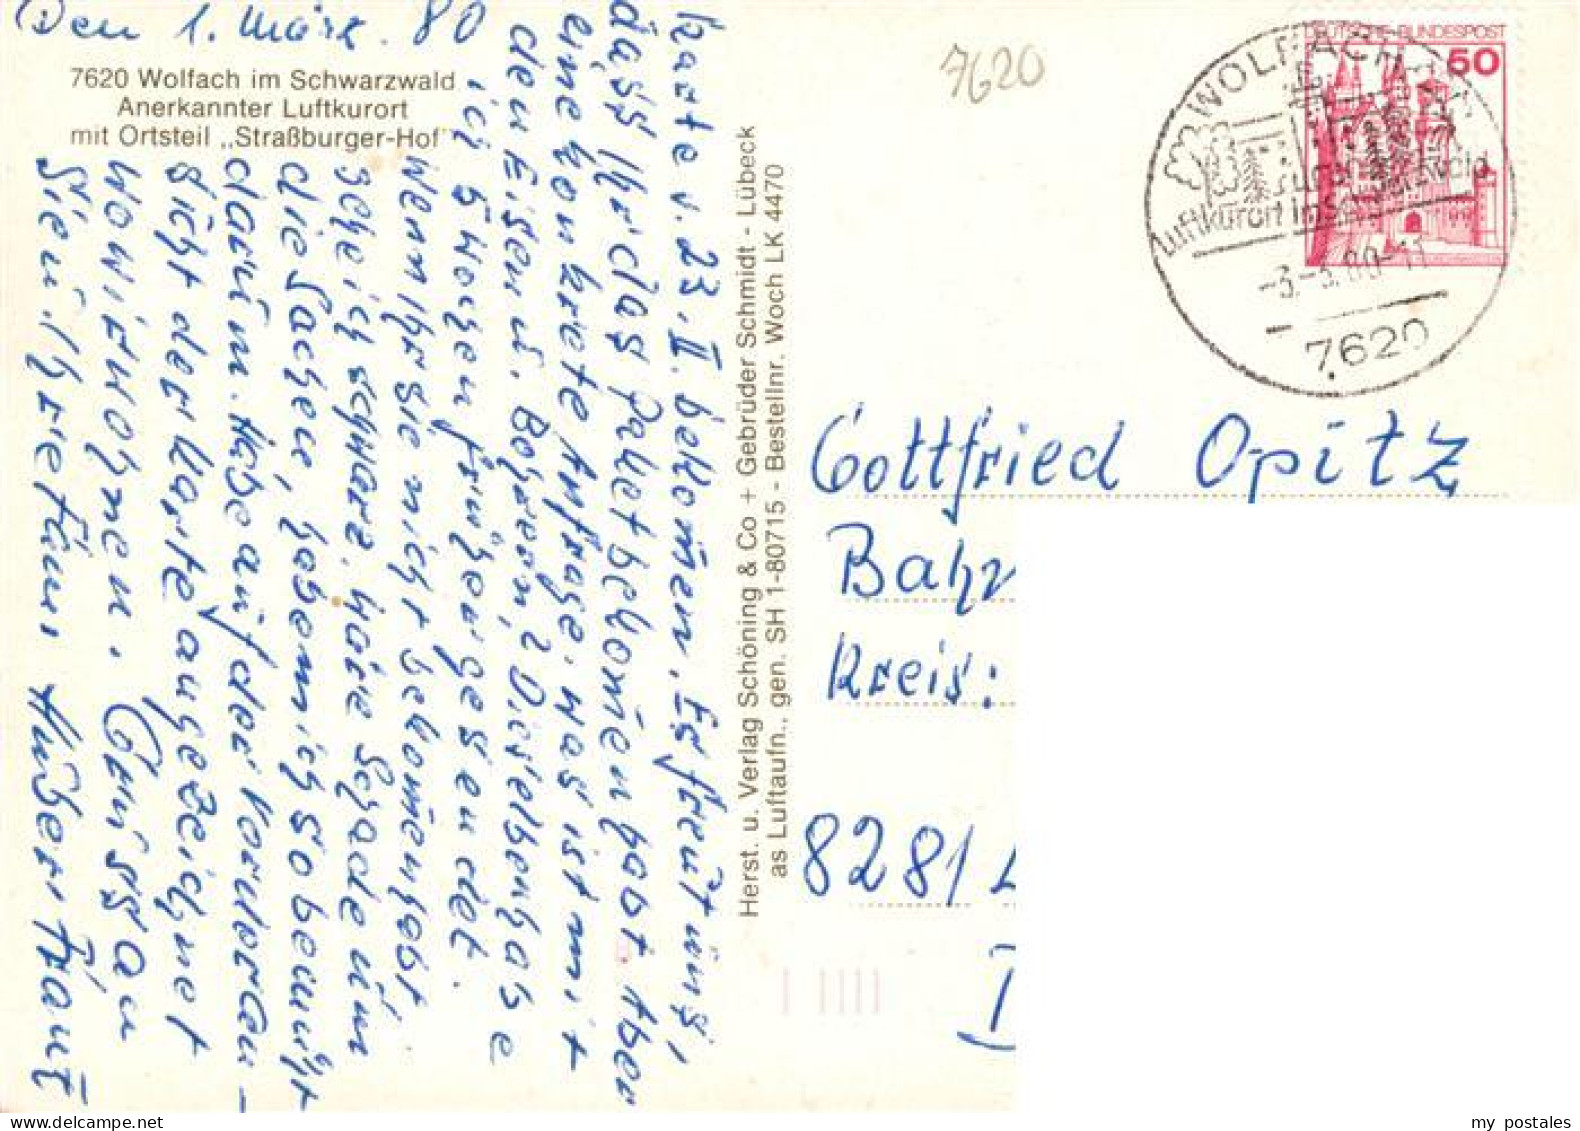 Den 1. März. 80
7620 Wolfach im Schwarzwald
Anerkannter Luftkurort
mit Ortsteil „Straßburger-Hof"
Karte v. 23. II. bekom̄en. Es freut uns,
dass Ihr das Paket bekom̄en habt. Aber
eine konkrete Anfrage. was ist mit
den Eisen u. Bohrern, ? Dieselben habe
ich 5 Wochen früher gesendet.
Wenn Ihr sie nicht bekom̄en habt,
sehe ich schwarz. habe gerade um
die Sachen, hab mich so bemüht
darum. Habe auf der vorderen-
sicht der Karte angezeichnet
wo wir wohnen. Grüssen
Sie u. Ihre Fam.
Herst. u. Verlag Schöning & Co + Gebrüder Schmidt - Lübeck
as Luftaufn., gen. SH 1-80715 - Bestellnr. Woch LK 4470
7620
DEUTSCHE BUNDESPOST
50
WOLFACH
Luftkurort im Schwarzwald
-3.-3.80-11
7620
Gottfried Opitz
Bahn
Kreis:
8281
my postales